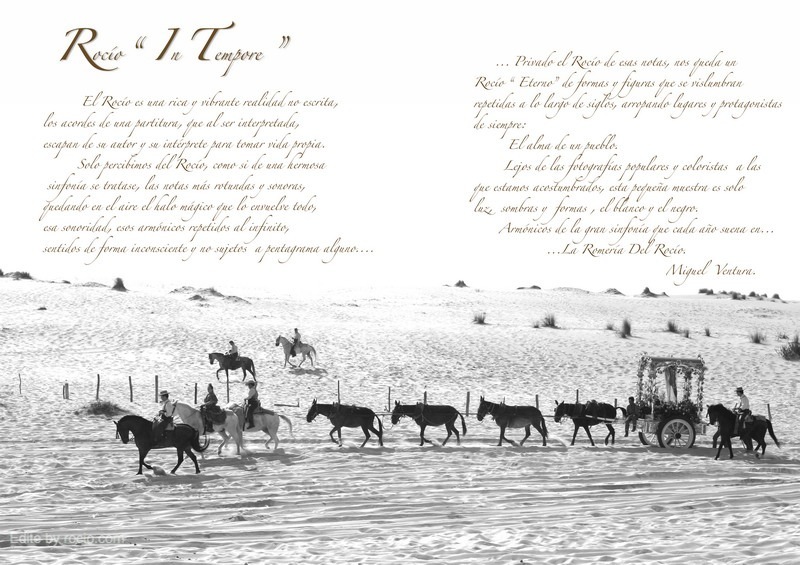 Rocío “ In Tempore ”
El Rocío es una rica y vibrante realidad no escrita,
los acordes de una partitura, que al ser interpretada,
escapan de su autor y su intérprete para tomar vida propia.
Solo percibimos del Rocío, como si de una hermosa
sinfonía se tratase, las notas más rotundas y sonoras,
quedando en el aire el halo mágico que lo envuelve todo,
esa sonoridad, esos armónicos repetidos al infinito,
sentidos de forma inconsciente y no sujetos a pentagrama alguno....
... Privado el Rocío de esas notas, nos queda un
Rocío “ Eterno” de formas y figuras que se vislumbran
repetidas a lo largo de siglos, arropando lugares y protagonistas
de siempre:
El alma de un pueblo.
Lejos de las fotografías populares y coloristas a las
que estamos acostumbrados, esta pequeña muestra es solo
luz, sombras y formas , el blanco y el negro.
Armónicos de la gran sinfonía que cada año suena en...
...La Romería Del Rocío.
Miguel Ventura.
Edite by rocio.com